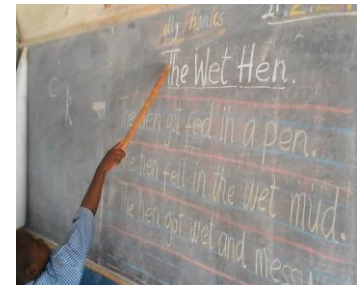 Jolly Phonics
The Wet Hen.
c
k
The hen got fed in a pen.
The hen fell in the wet mud.
The hen got wet and messy